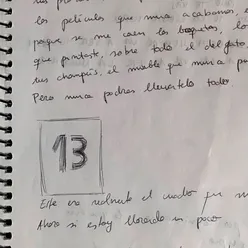 las películas que nunca acabamos, e
porque se me caen los boquetes, lo
que pintaste, sobre todo el del gato,
tus champús, el mueble que nunca pu
Pero nunca podras llevartelo todo.
13
Este era realmente el cuadro que
Ahora si estoy llorando un poco